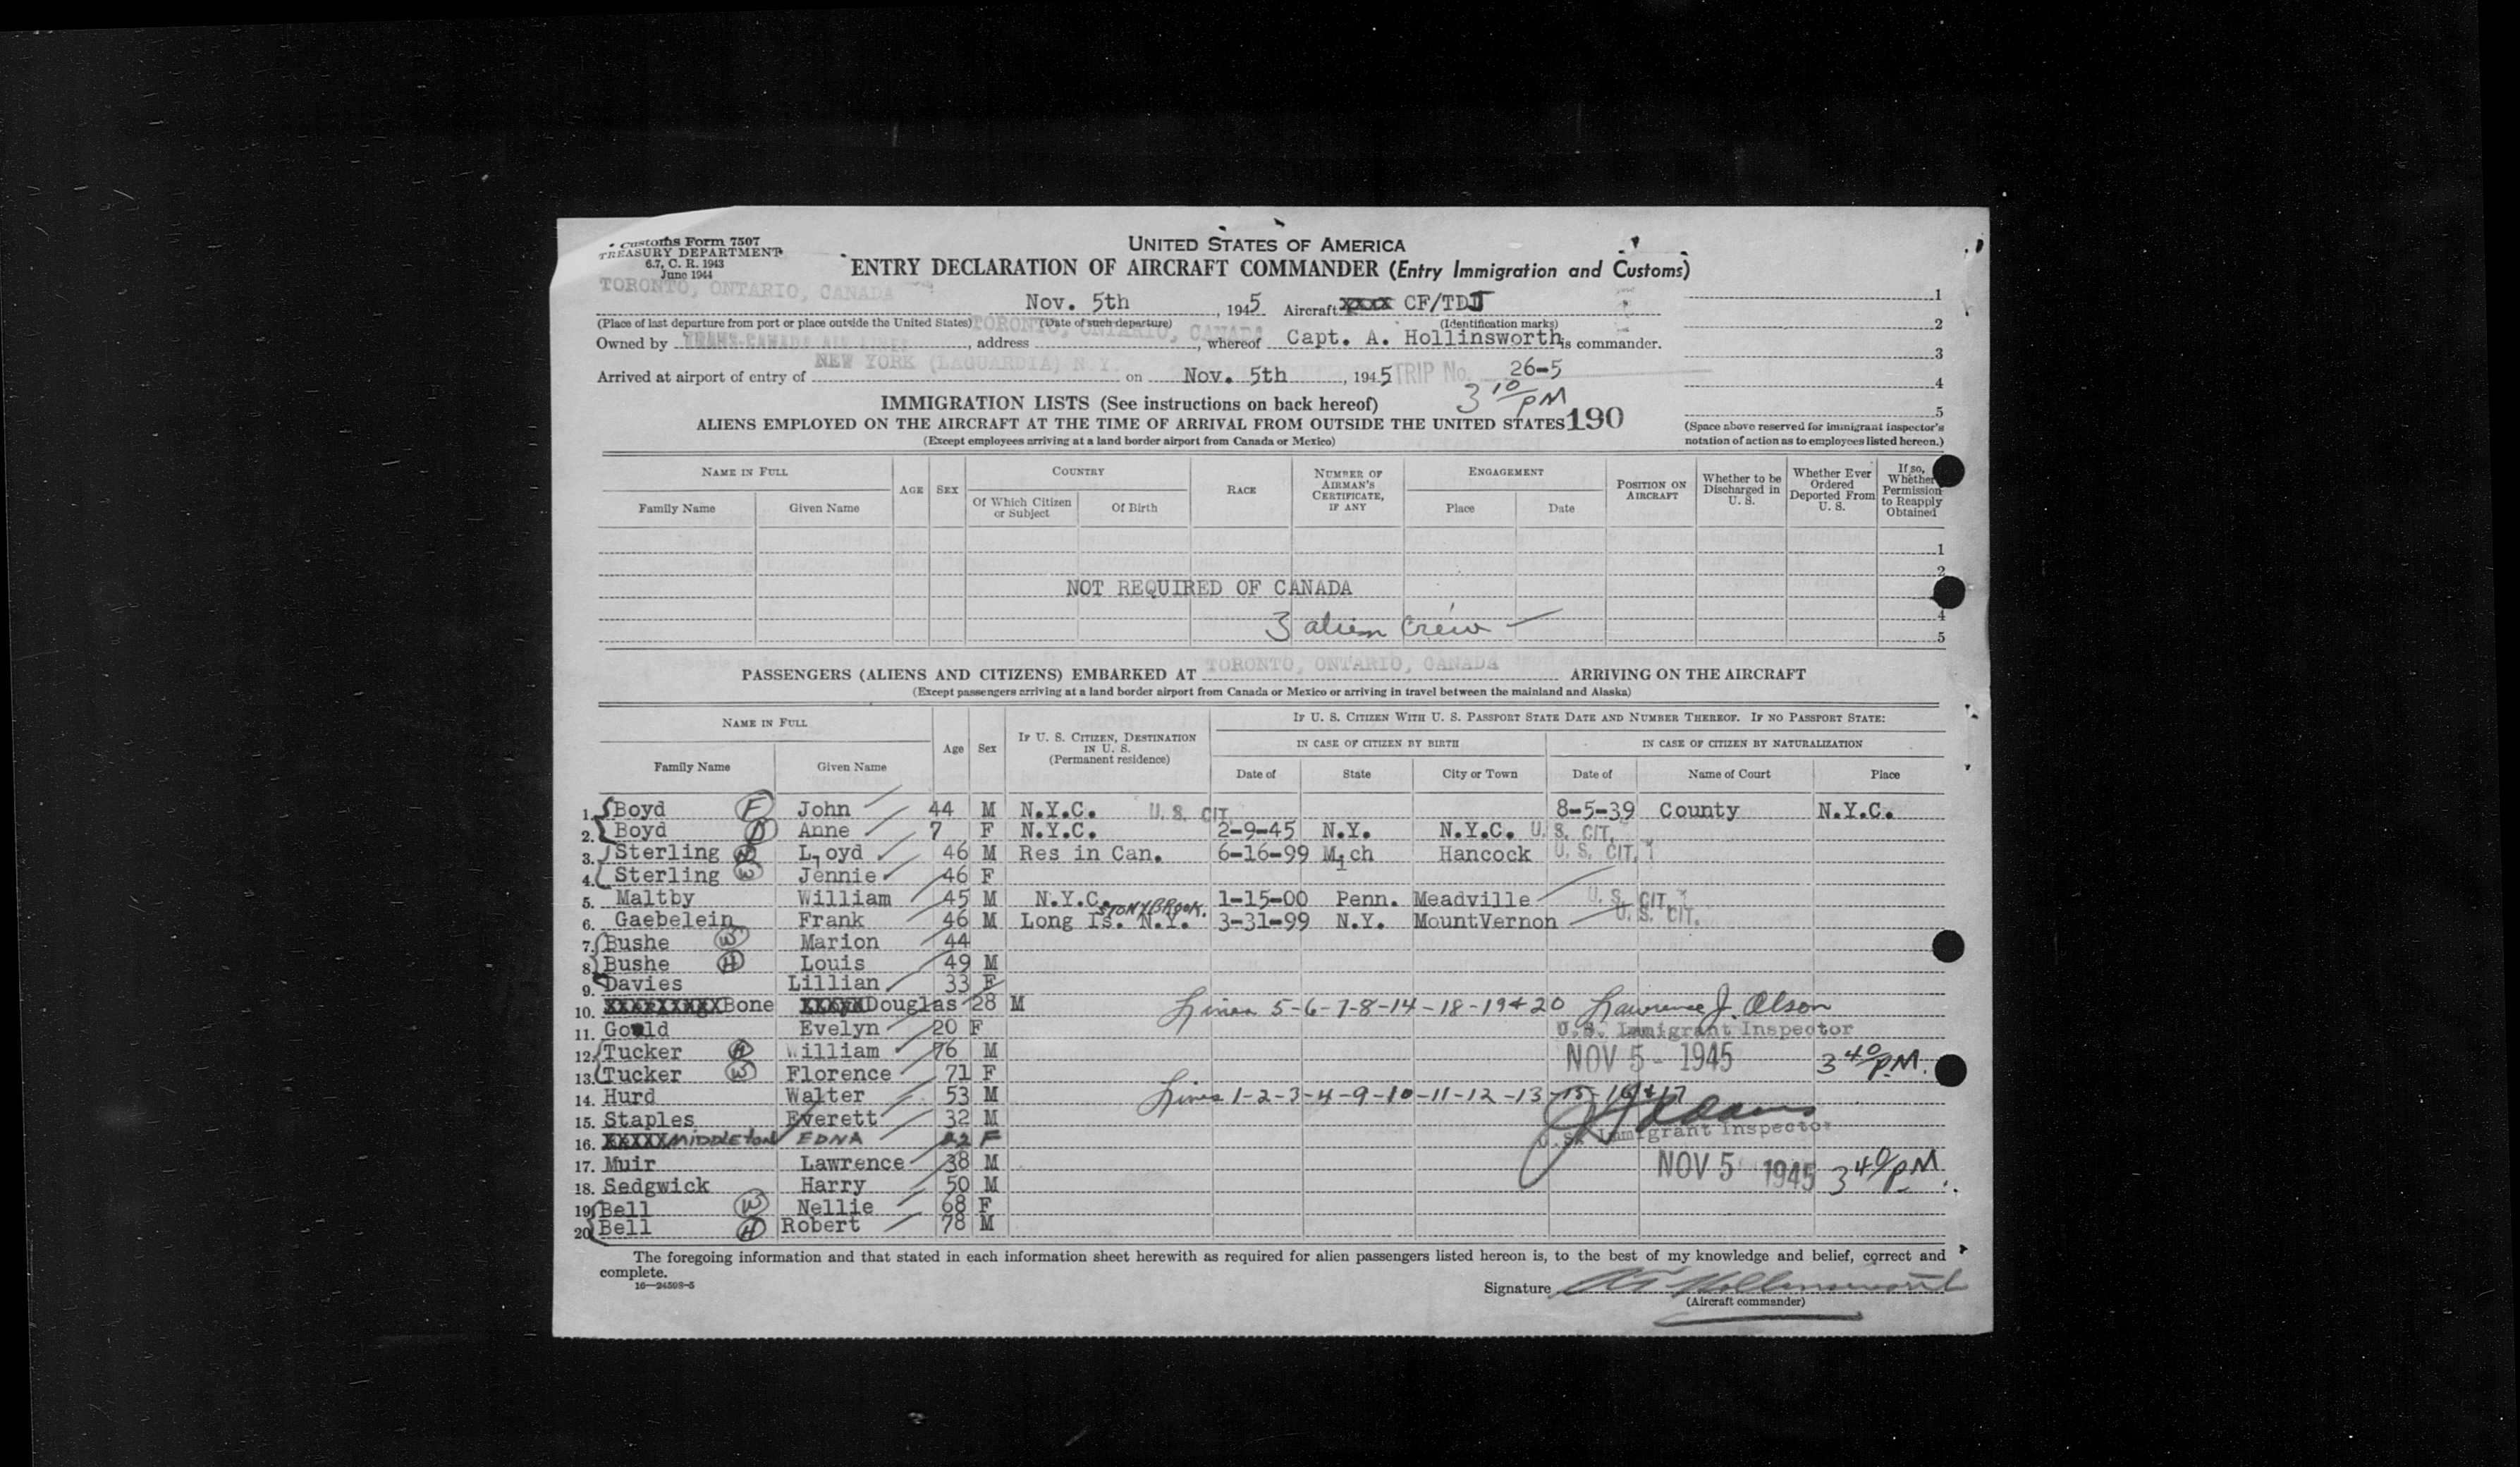 Customs Form 7507
TREASURY DEPARTMENT
6.7, C. R. 1943
June 1944
UNITED STATES OF AMERICA
ENTRY DECLARATION OF AIRCRAFT COMMANDER (Entry Immigration and Customs)
TORONTO, ONTARIO, CANADA Nov. 5th, 1945 Aircraft xxxx CF/TDJ 1
(Place of last departure from port or place outside the United States) (Date of such departure) (Identification marks) 2
Owned by TRANS-CANADA AIR LINES, address TORONTO, ONTARIO, CANADA, whereof Capt. A. Hollinsworth is commander. 3
Arrived at airport of entry of NEW YORK (LAGUARDIA) N.Y. on Nov. 5th, 1945 TRIP No. 26-5 4
3 10/PM
IMMIGRATION LISTS (See instructions on back hereof) 5
ALIENS EMPLOYED ON THE AIRCRAFT AT THE TIME OF ARRIVAL FROM OUTSIDE THE UNITED STATES 190
(Except employees arriving at a land border airport from Canada or Mexico)
(Space above reserved for immigrant inspector's
notation of action as to employees listed hereon.)
NAME IN FULL AGE SEX COUNTRY RACE NUMBER OF AIRMAN'S CERTIFICATE, IF ANY ENGAGEMENT POSITION ON AIRCRAFT Whether to be Discharged in U. S. Whether Ever Ordered Deported From U. S. If so, Whether Permission to Reapply Obtained
Family Name Given Name Of Which Citizen or Subject Of Birth Place Date
1
2
NOT REQUIRED OF CANADA
3 alien crew 4
5
PASSENGERS (ALIENS AND CITIZENS) EMBARKED AT TORONTO, ONTARIO, CANADA ARRIVING ON THE AIRCRAFT
(Except passengers arriving at a land border airport from Canada or Mexico or arriving in travel between the mainland and Alaska)
NAME IN FULL Age Sex IF U. S. CITIZEN, DESTINATION IN U. S. (Permanent residence) IF U. S. CITIZEN WITH U. S. PASSPORT STATE DATE AND NUMBER THEREOF. IF NO PASSPORT STATE:
IN CASE OF CITIZEN BY BIRTH IN CASE OF CITIZEN BY NATURALIZATION
Family Name Given Name Date of State City or Town Date of Name of Court Place
1. Boyd F John 44 M N.Y.C. U. S. CIT. 8-5-39 County N.Y.C.
2. Boyd D Anne 7 F N.Y.C. 2-9-45 N.Y. N.Y.C. U. S. CIT.
3. Sterling H Lloyd 46 M Res in Can. 6-16-99 Mich Hancock U. S. CIT.
4. Sterling W Jennie 46 F
5. Maltby William 45 M N.Y.C. 1-15-00 Penn. Meadville U. S. CIT.
6. Gaebelein Frank 46 M STONYBROOK. Long Is. N.Y. 3-31-99 N.Y. MountVernon U. S. CIT.
7. Bushe W Marion 44
8. Bushe H Louis 49 M
9. Davies Lillian 33 F
10. Bone Douglas 28 M Lines 5-6-7-8-14-18-19+20 Lawrence J. Olson
11. Gould Evelyn 20 F U.S. Immigrant Inspector
12. Tucker H William 76 M NOV 5 - 1945 3 40/P.M.
13. Tucker W Florence 71 F
14. Hurd Walter 53 M Lines 1-2-3-4-9-10-11-12-13-15-16+17
15. Staples Everett 32 M
16. xxxxx MIDDLETON EDNA 22 F U.S. Immigrant Inspector
17. Muir Lawrence 38 M NOV 5 1945 3 40/P.M.
18. Sedgwick Harry 50 M
19. Bell W Nellie 68 F
20. Bell H Robert 78 M
The foregoing information and that stated in each information sheet herewith as required for alien passengers listed hereon is, to the best of my knowledge and belief, correct and
complete.
16—24598-5
Signature A Hollinsworth
(Aircraft commander)